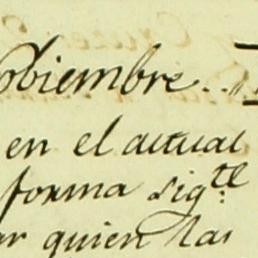 obiembre..
en el actual
forma sig.te
quien las